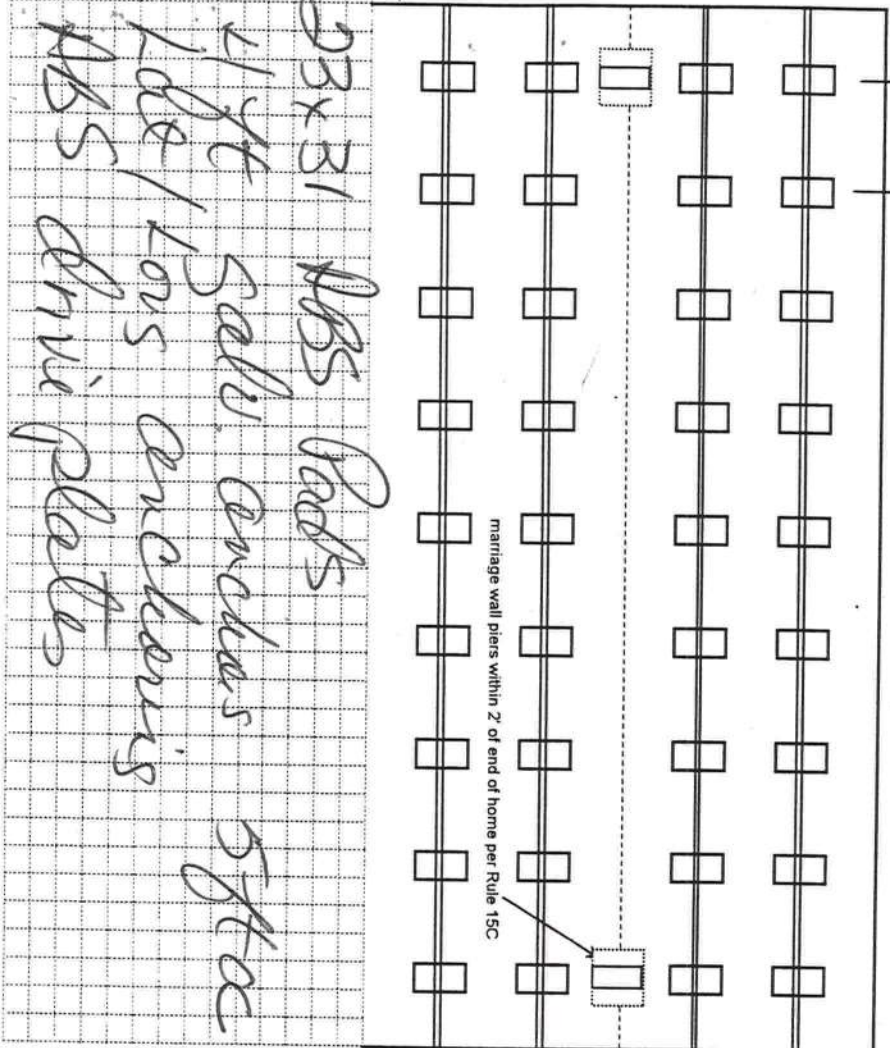 marriage wall piers within 2' of end of home per Rule 15C
23x31 ABS Pads
4ft Galv. anchors 5ft oc
Lat / Long anchoring
ABS drive plates